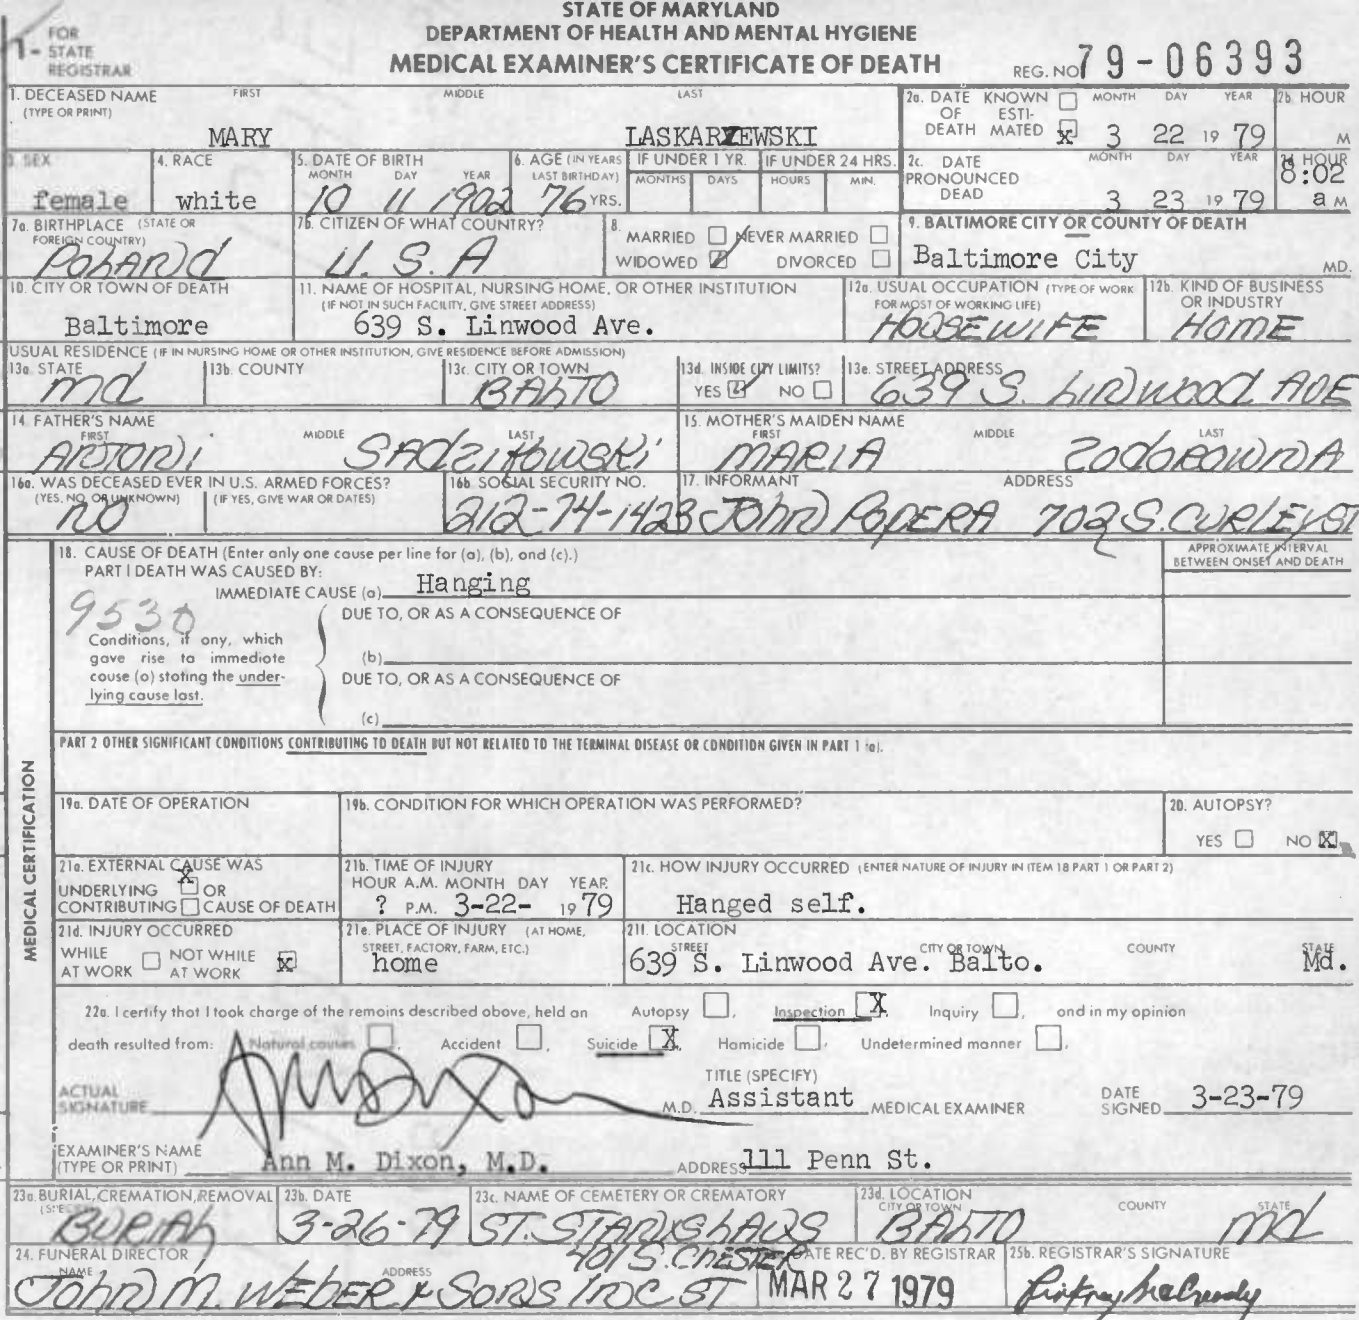 STATE OF MARYLAND
DEPARTMENT OF HEALTH AND MENTAL HYGIENE
MEDICAL EXAMINER'S CERTIFICATE OF DEATH
1- FOR STATE REGISTRAR
REG. NO. 79-06393
1. DECEASED NAME (TYPE OR PRINT) FIRST MIDDLE LAST
MARY LASKARZEWSKI
2a. DATE OF DEATH KNOWN ☐ ESTIMATED ☒ MONTH DAY YEAR
3 22 19 79
2b. HOUR M
3. SEX
female
4. RACE
white
5. DATE OF BIRTH MONTH DAY YEAR
10 11 1902
6. AGE (IN YEARS LAST BIRTHDAY)
76 YRS.
IF UNDER 1 YR. MONTHS DAYS
IF UNDER 24 HRS. HOURS MIN.
2c. DATE PRONOUNCED DEAD MONTH DAY YEAR
3 23 19 79
2d HOUR
8:02 a M
7a. BIRTHPLACE (STATE OR FOREIGN COUNTRY)
POLAND
7b. CITIZEN OF WHAT COUNTRY?
U.S.A
8. MARRIED ☐ NEVER MARRIED ☐
WIDOWED ☑ DIVORCED ☐
9. BALTIMORE CITY OR COUNTY OF DEATH
Baltimore City MD.
10. CITY OR TOWN OF DEATH
Baltimore
11. NAME OF HOSPITAL, NURSING HOME, OR OTHER INSTITUTION
(IF NOT IN SUCH FACILITY, GIVE STREET ADDRESS)
639 S. Linwood Ave.
12a. USUAL OCCUPATION (TYPE OF WORK FOR MOST OF WORKING LIFE)
HOUSEWIFE
12b. KIND OF BUSINESS OR INDUSTRY
HOME
USUAL RESIDENCE (IF IN NURSING HOME OR OTHER INSTITUTION, GIVE RESIDENCE BEFORE ADMISSION)
13a. STATE
md
13b. COUNTY
13c. CITY OR TOWN
BALTO
13d. INSIDE CITY LIMITS?
YES ☑ NO ☐
13e. STREET ADDRESS
639 S. LINWOOD AVE
14. FATHER'S NAME FIRST MIDDLE LAST
ANTONI
15. MOTHER'S MAIDEN NAME FIRST MIDDLE LAST
MARIA
16a. WAS DECEASED EVER IN U.S. ARMED FORCES?
(YES, NO, OR UNKNOWN) (IF YES, GIVE WAR OR DATES)
NO
16b. SOCIAL SECURITY NO.
212-74-1423
17. INFORMANT ADDRESS
JOHN POPERA 702 S. CURLEY ST
MEDICAL CERTIFICATION
18. CAUSE OF DEATH (Enter only one cause per line for (a), (b), and (c).)
PART I DEATH WAS CAUSED BY:
APPROXIMATE INTERVAL BETWEEN ONSET AND DEATH
IMMEDIATE CAUSE (a) Hanging
9530
DUE TO, OR AS A CONSEQUENCE OF
Conditions, if any, which
gave rise to immediate
cause (a) stating the under-
lying cause last.
(b)
DUE TO, OR AS A CONSEQUENCE OF
(c)
PART 2 OTHER SIGNIFICANT CONDITIONS CONTRIBUTING TO DEATH BUT NOT RELATED TO THE TERMINAL DISEASE OR CONDITION GIVEN IN PART 1 (a).
19a. DATE OF OPERATION
19b. CONDITION FOR WHICH OPERATION WAS PERFORMED?
20. AUTOPSY?
YES ☐ NO ☒
21a. EXTERNAL CAUSE WAS
UNDERLYING ☒ OR
CONTRIBUTING ☐ CAUSE OF DEATH
21b. TIME OF INJURY
HOUR A.M. MONTH DAY YEAR
? P.M. 3-22- 19 79
21c. HOW INJURY OCCURRED (ENTER NATURE OF INJURY IN ITEM 18 PART 1 OR PART 2)
Hanged self.
21d. INJURY OCCURRED
WHILE AT WORK ☐ NOT WHILE AT WORK ☒
21e. PLACE OF INJURY (AT HOME, STREET, FACTORY, FARM, ETC.)
home
21f. LOCATION
STREET CITY OR TOWN COUNTY STATE
639 S. Linwood Ave. Balto. Md.
22a. I certify that I took charge of the remains described above, held an Autopsy ☐, Inspection ☒ Inquiry ☐, and in my opinion
death resulted from: Natural causes ☐, Accident ☐, Suicide ☒, Homicide ☐, Undetermined manner ☐.
ACTUAL SIGNATURE Ann M Dixon M.D.
TITLE (SPECIFY)
Assistant MEDICAL EXAMINER
DATE SIGNED 3-23-79
EXAMINER'S NAME (TYPE OR PRINT) Ann M. Dixon, M.D.
ADDRESS 111 Penn St.
23a. BURIAL, CREMATION, REMOVAL (SPECIFY)
BURIAL
23b. DATE
3-26-79
23c. NAME OF CEMETERY OR CREMATORY
ST. STANISLAUS
23d. LOCATION CITY OR TOWN COUNTY STATE
BALTO md
24. FUNERAL DIRECTOR
NAME ADDRESS
JOHN M. WEBER & SONS INC 401 S. CHESTER ST
DATE REC'D. BY REGISTRAR
MAR 27 1979
25b. REGISTRAR'S SIGNATURE